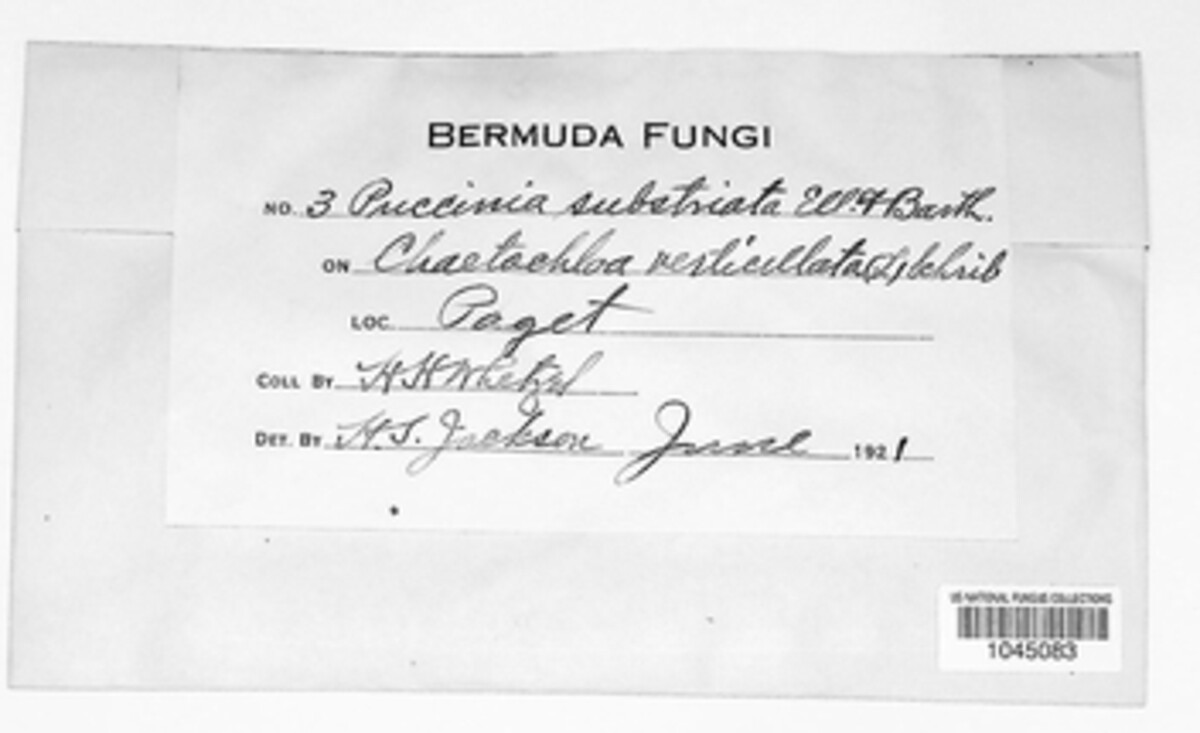 BERMUDA FUNGI
NO. 3 Puccinia substriata Ell. & Barth.
ON Chaetochloa verticillata (L) Schrib
LOC. Paget
COLL BY H H Whetzel
DET. BY H.S. Jackson June 1921
US NATIONAL FUNGUS COLLECTIONS
1045083